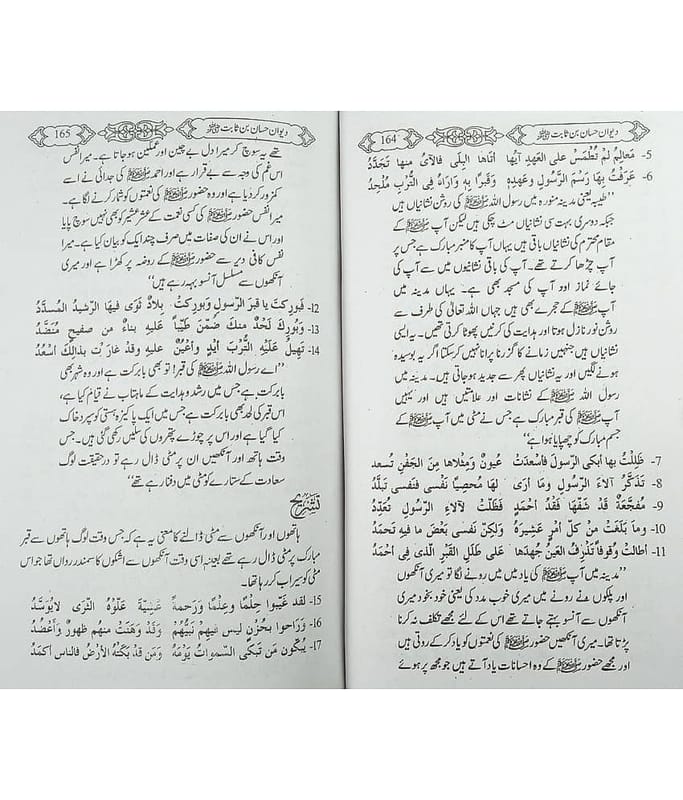 دیوان حسان بن ثابت ﷺ
164
5- معالِمُ لَمْ تُطْمَسْ على العهدِ آيُها اتاها البِلَى فالآىُ منها تَجَدَّدُ
6- عَرَفْتُ بها رَسْمَ الرَّسُولِ وعهدِهٖ وقَبْرًا بِهٖ وَارَاهُ فِى التُّرْبِ مُلْحِدُ
’’طیبہ یعنی مدینہ منورہ میں رسول اللہ ﷺ کی روشن نشانیاں ہیں
جبکہ دوسری بہت سی نشانیاں مٹ چکی ہیں لیکن آپ کے
مقام محترم کی نشانیاں باقی ہیں یہاں آپ کا منبر مبارک ہے جس پر
آپ چڑھا کرتے تھے۔ آپ کی باقی نشانیوں میں سے آپ کی
جائے نماز اور آپ کی مسجد بھی ہے۔ یہاں مدینہ میں
آپ کے حجرے بھی ہیں جہاں اللہ تعالیٰ کی طرف سے
روشن نور نازل ہوتا اور ہدایت کی کرنیں پھوٹا کرتی تھیں۔ یہ ایسی
نشانیاں ہیں جنہیں زمانے کا گزرنا پرانا نہیں کرسکتا اگر یہ بوسیدہ
ہونے لگیں اور یہ نشانیاں پھر سے جدید ہو جاتی ہیں۔ مدینہ میں
رسول اللہ ﷺ کے نشانات اور علامتیں ہیں اور یہیں
آپ ﷺ کی قبر مبارک ہے جس نے مٹی میں آپ ﷺ کے
جسم مبارک کو چھپایا ہوا ہے‘‘
7- ظَلِلْتُ بها أبكى الرسولَ فاسْعدَتْ عيونٌ ومثلاها مِنَ الجَفْنِ تُسعد
8- تَذَكَّرُ آلاءَ الرَّسُولِ وما أرَى لها مُحصِيًا نَفْسى فنفسى تبلَّدُ
9- مُفَجَّعَةٌ قَدْ شَفَّهَا فَقْدُ أحْمَدٍ فَظَلَّتْ لِآلاءِ الرَّسُولِ تُعَدِّدُ
10- وما بَلَغَتْ مِنْ كلِّ امْرٍ عشِيْرَهٗ ولكِنْ نَفسى بَعْضَ ما فيه تَحمَدُ
11- أطالَتْ وُقُوفًا تَذْرِفُ العينُ جُهدَها على طَلَلِ القَبْرِ الَّذى فِى أحْمَدُ
’’مدینہ میں آپ ﷺ کی یاد میں میں رونے لگا تو میری آنکھوں
اور پلکوں نے رونے میں میری خوب مدد کی یعنی خود بخود میری
آنکھوں سے آنسو بہتے جاتے تھے اس کے لئے مجھے تکلف نہ کرنا
پڑتا تھا۔ میری آنکھیں حضور ﷺ کی نعمتوں کو یاد کر کے روتی ہیں
اور مجھے حضور ﷺ کے وہ احسانات یاد آتے ہیں جو مجھ پر ہوئے
دیوان حسان بن ثابت ﷺ
165
تھے یہ سوچ کر میرا دل بے چین اور غمگین ہو جاتا ہے۔ میرا نفس
اس غم کی وجہ سے بے قرار ہے اور احمد ﷺ کی جدائی نے اسے
کمزور کر دیا ہے اور وہ حضور ﷺ کی نعمتوں کو شمار کرنے لگا ہے۔
میرا نفس حضور ﷺ کی کسی نعمت کے عشر عشیر کو بھی نہیں سوچ پایا
اور اس نے ان کی صفات میں صرف چند ایک کو بیان کیا ہے۔ میرا
نفس کافی دیر سے حضور ﷺ کے روضہ پر کھڑا ہے اور میری
آنکھوں سے مسلسل آنسو بہہ رہے ہیں‘‘
12- فبوركتَ يا قبرَ الرَّسولِ وبُوركتْ بلادٌ ثَوَى فيها الرشيدُ المسدَّدُ
13- وَبُورِكَ لَحْدٌ منكَ ضُمِّنَ طَيِّبًا عليهِ بناءٌ من صفيحٍ مُنَضَّدُ
14- تَهِيلُ عَلَيْهِ التُّرْبَ أيْدٍ وأعْيُنٌ عليهِ وقد غارَتْ بذالكَ اسْعُدُ
’’اے رسول اللہ ﷺ کی قبر! تو بھی بابرکت ہے اور وہ شہر بھی
بابرکت ہے جس میں رشد و ہدایت کے ماہتاب نے قیام کیا ہے،
اس قبر کی لحد بھی بابرکت ہے جس میں ایک پاکیزہ ہستی کو سپرد خاک
کیا گیا ہے اور اس پر چوڑے پتھروں کی سلیں رکھی گئی ہیں۔ جس
وقت ہاتھ اور آنکھیں ان پر مٹی ڈال رہے تو درحقیقت لوگ
سعادت کے ستارے کو مٹی میں دفنا رہے تھے‘‘
تشریح
ہاتھوں اور آنکھوں سے مٹی ڈالنے کا معنی یہ ہے کہ جس وقت لوگ ہاتھوں سے قبر
مبارک پر مٹی ڈال رہے تھے بعینہٖ اسی وقت آنکھوں سے اشکوں کا سمندر رواں تھا جو اس
مٹی کو سیراب کر رہا تھا۔
15- لقد غَيبوا حِلْمًا وعِلْمًا ورَحمةً عَشِيَّةَ عَلَّوْهُ الثَّرَى لايُوَسَّدُ
16- وَرَاحوا بحُزْنٍ ليس فيهِمْ نَبِيُّهُمْ وقَدْ وَهَنَتْ منهم ظهورٌ وأعْضُدُ
17- يُبَكّون مَن تَبكى السَّمواتُ يَوْمَهٗ ومَن قَدْ بَكَتْهُ الأرْضُ فالناس اكمَدُ